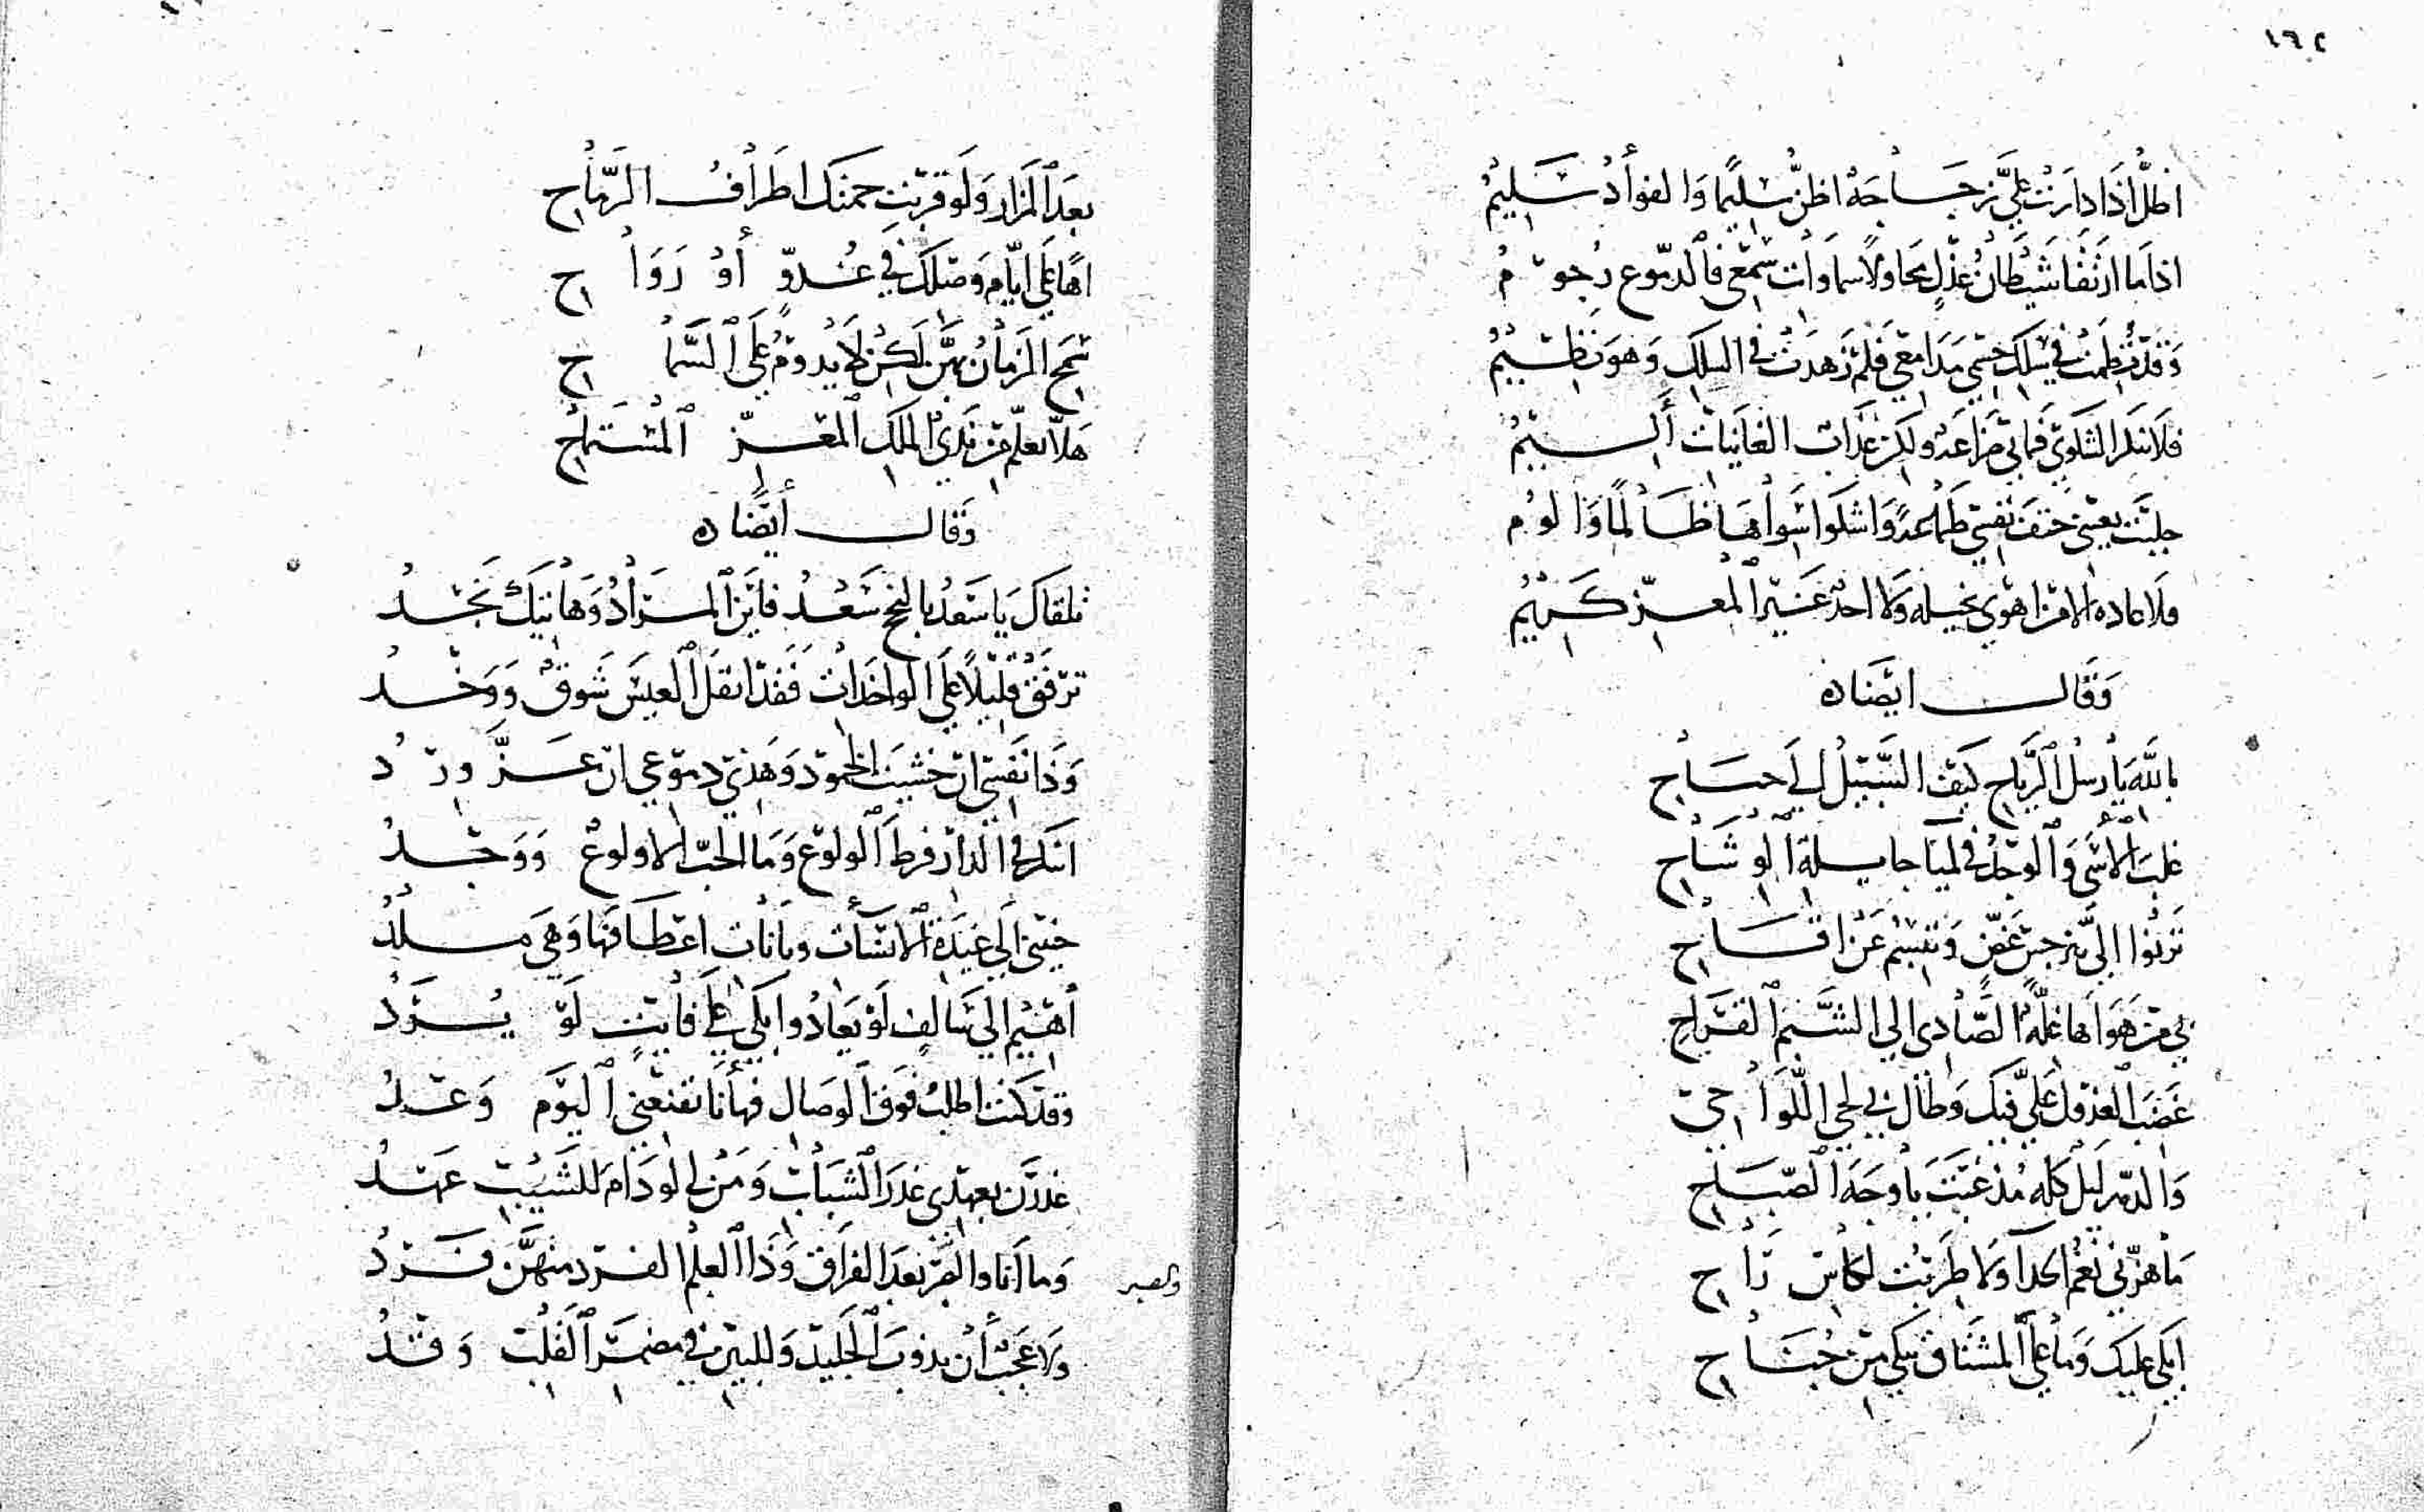 ١٦٢
اظل اذا دارت علي زجاجة اظن سليما والفواد سليم
اذا ما ارتقا شيطان عذل محاولا سماوات سمعي فالدموع رجوم
وقد نظمت في سلك جسمي مدامعي فلم زهدت في السلك وهو نظيم
فلا تنكر الشكوى فما بي ضراعة ولكن عذاب الغانيات أليم
جلبت بعيني حتف نفسي ظلما عمدا واشكوا سواها ظالما والوم
فلا غادة الا من اهوى بخيلة ولا احد غير المعز كريم
وقال ايضا ه
بالله يا رسل الرياح كيف السبيل الى صاح
غلب الأسى والوجد في لميا جايلة الوشاح
ترنوا الي بنرجس غض وتبسم عن اقاح
بي من هواها غلة الصادي الى الشبم القراح
غضب العذول علي فيك وطال بي لحي اللواحي
والدهر ليل كله مذ غبت يا وجه الصباح
ما هزني نغم الحدا ولا طربت لكاس راح
ابكي عليك وما على المشتاق يبكي من جناح
بعد المزار ولو قربت حمتك اطراف الرماح
اها على ايام وصلك في غدو أو رواح
سمح الزمان بهن لكن لا يدوم على السماح
هلا تعلم من ندى الملك المعز المستماح
وقال أيضا ه
تلقاك يا سعد بالنجح سعد فاين المراد وهاتيك نجد
ترفق قليلا على الواخدات فقد انقل العيس شوق ووخد
وذا نفسي ان خشيت الخمود وهذي دموعي ان عز ورد
اتنكر في الدار فرط الولوع وما الحب الا ولوع ووجد
حنيني الى غيدة الانسات وبانات اعطافها وهي ملد
أهيم الى سالف لو يعاد وابكي على فايت لو يرد
وقد كنت اطلب فوق الوصال فها أنا تقنعني اليوم وعد
غدرن بعهدي غدر الشباب ومن لي لو دام للشيب عهد
وما انا والعز بعد الفراق وذا العلم الفرد منهن فرد
والصبر
ولا عجب أن يذوب الجليد وللبين في مضمر القلب وقد